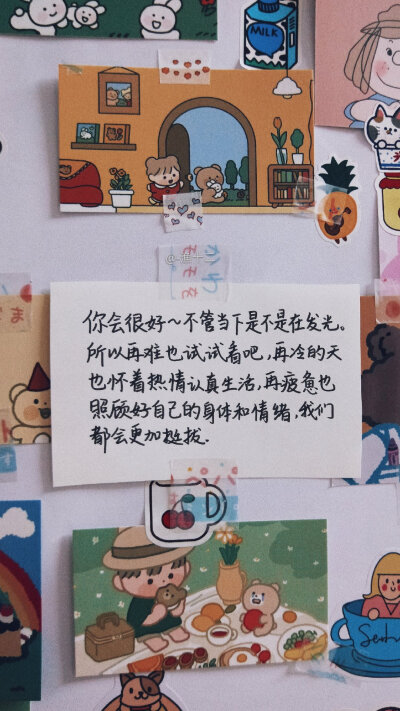 MILK
你会很好~不管当下是不是在发光。
所以再难也试试看吧,再冷的天
也怀着热情认真生活,再疲惫也
照顾好自己的身体和情绪,我们
都会更加挺拔.